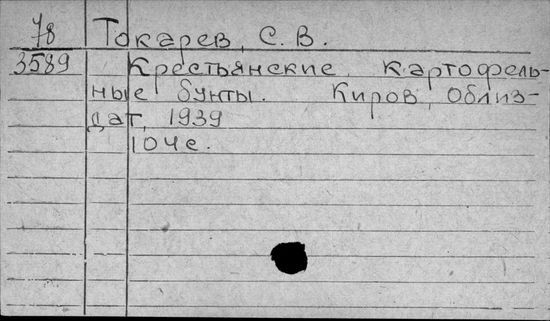 78 Токарев, С. В.
3589 Крестьянские картофель-
ные бунты. Киров, Облиз-
дат, 1939
104 с.